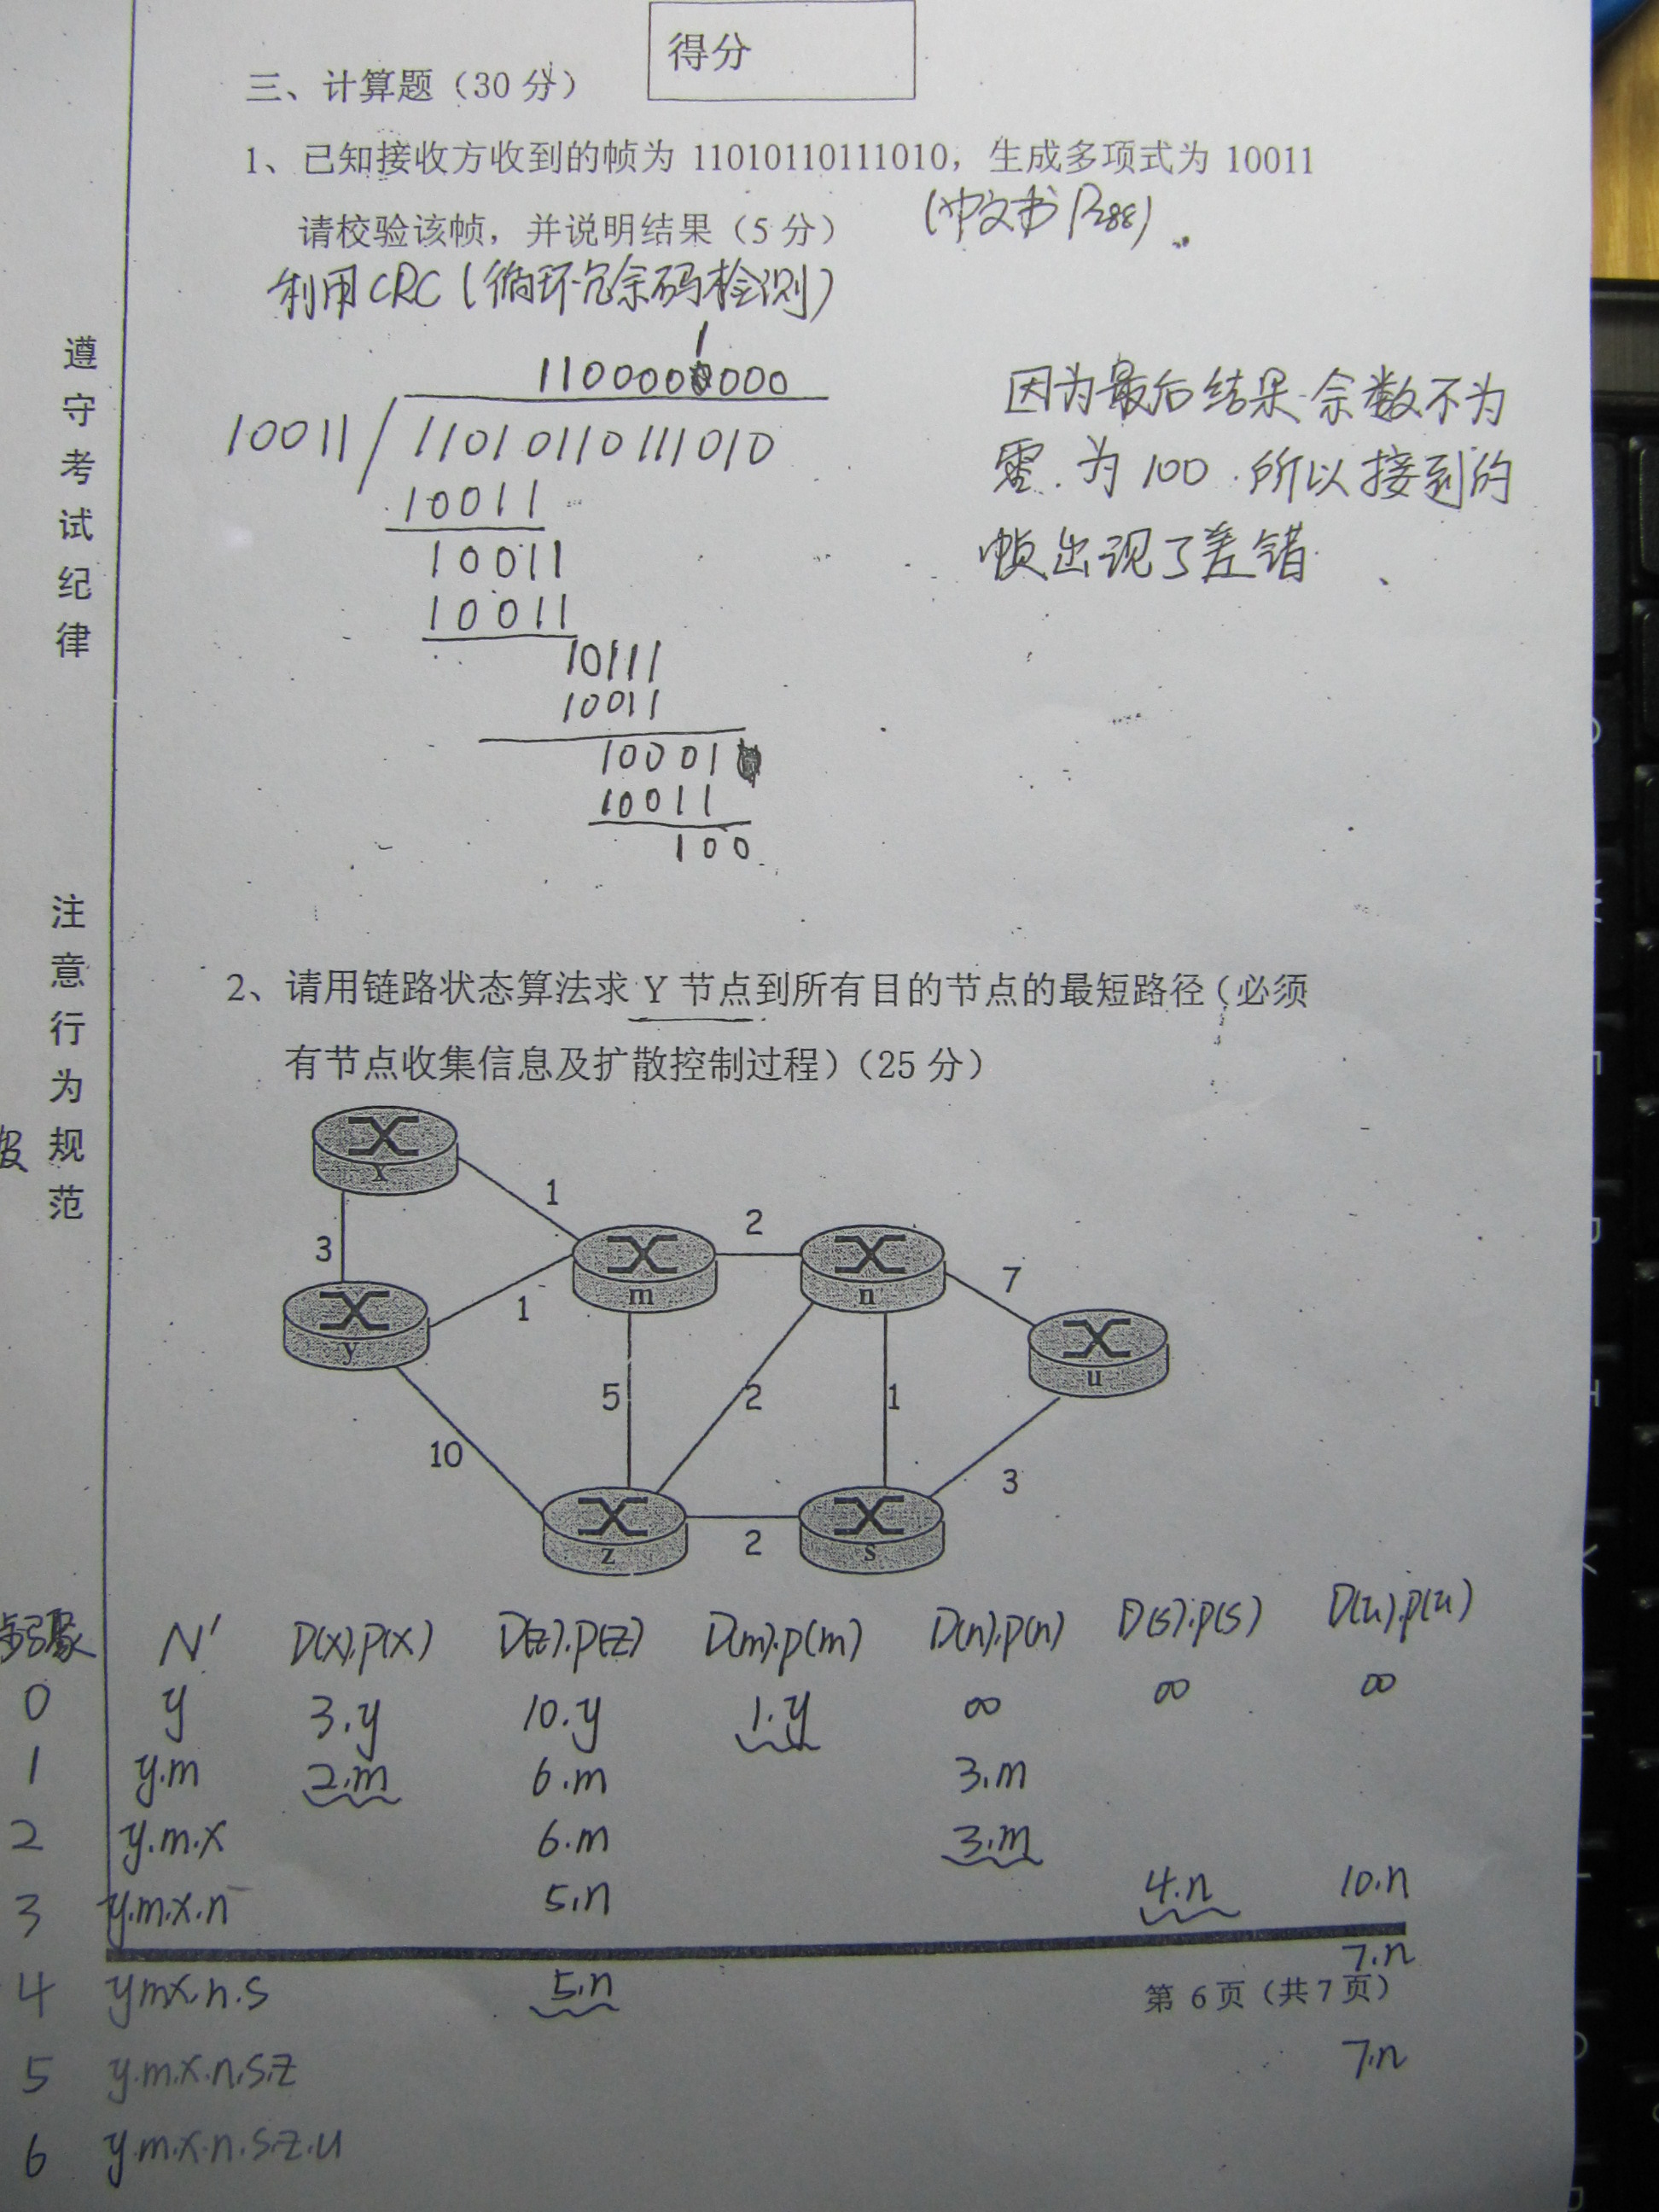 得分
三、计算题（30 分）
1、已知接收方收到的帧为 11010110111010，生成多项式为 10011
请校验该帧，并说明结果（5 分）
(中文书 P288)
利用CRC(循环冗余码检测)
1
110000 000
10011 11010110111010
10011
10011
10011
10111
10011
10001
10011
100
因为最后结果余数不为
零.为100.所以接到的
帧出现了差错.
遵守考试纪律
注意行为规范
2、请用链路状态算法求 Y 节点到所有目的节点的最短路径（必须
有节点收集信息及扩散控制过程）（25 分）
x
1
2
3
m
n
7
1
y
u
5
2
1
10
3
z
2
s
步骤 N' D(x).p(x) D(z).p(z) D(m).p(m) D(n).p(n) D(s).p(s) D(u).p(u)
0 y 3.y 10.y 1.y ∞ ∞ ∞
1 y.m 2.m 6.m 3.m
2 y.m.x 6.m 3.m
3 y.m.x.n 5.n 4.n 10.n
4 ymx.n.s 5.n 7.n
第 6页（共7页）
5 y.m.x.n.s.z 7.n
6 y.m.x.n.s.z.u